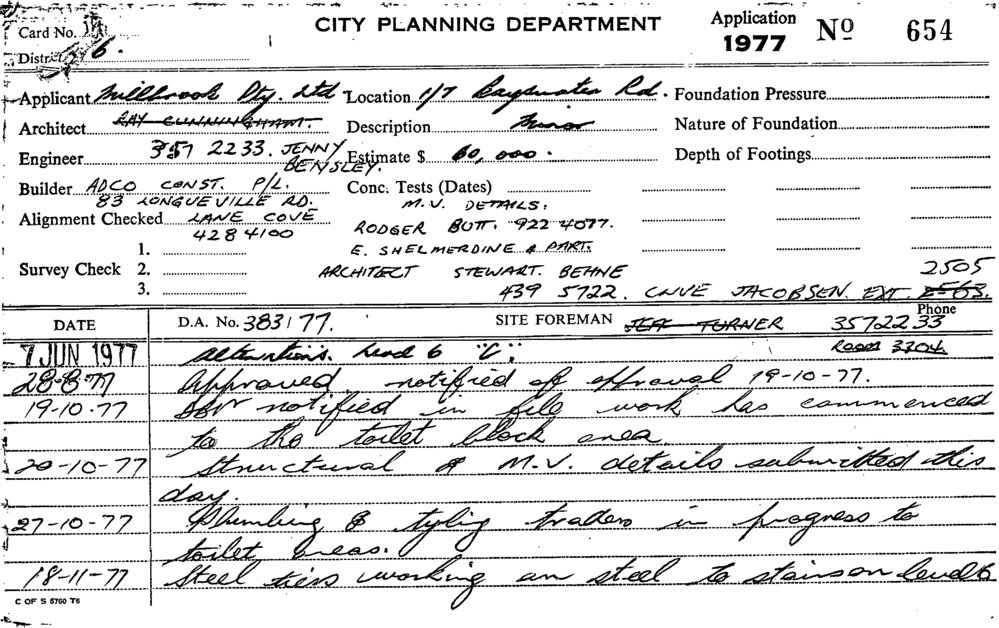 CITY PLANNING DEPARTMENT
Application 1977 No 654
Card No.
District 6.
Applicant Millbrook Pty. Ltd Location 1/7 Bayswater Rd. Foundation Pressure
Architect RAY CUNNINGHAM. Description Minor Nature of Foundation
Engineer 357 2233. JENNY BENSLEY. Estimate $ 60,000. Depth of Footings
Builder ADCO CONST. P/L. Conc. Tests (Dates)
83 LONGUEVILLE RD. M.V. DETAILS:
Alignment Checked LANE COVE RODGER BUTT. 922 4077.
428 4100
1. E. SHELMERDINE & PART.
Survey Check 2. ARCHITECT STEWART. BEHNE 2505
3. 439 5722. CLIVE JACOBSEN. EXT. 2563.
DATE D.A. No. 383/77. SITE FOREMAN JEFF TURNER Phone 3572233
7 JUN 1977 Alterations. Level 6 "C". ROOM 3304.
28-8-77 Approved. notified of approval 19-10-77.
19-10-77 notified in file work has commenced
to the toilet block area
20-10-77 Structural & M.V. details submitted this
day.
27-10-77 Plumbing & tyling traders in progress to
toilet areas.
18-11-77 Steel tiers working on steel to stairs on level 6
C OF S 6760 T6